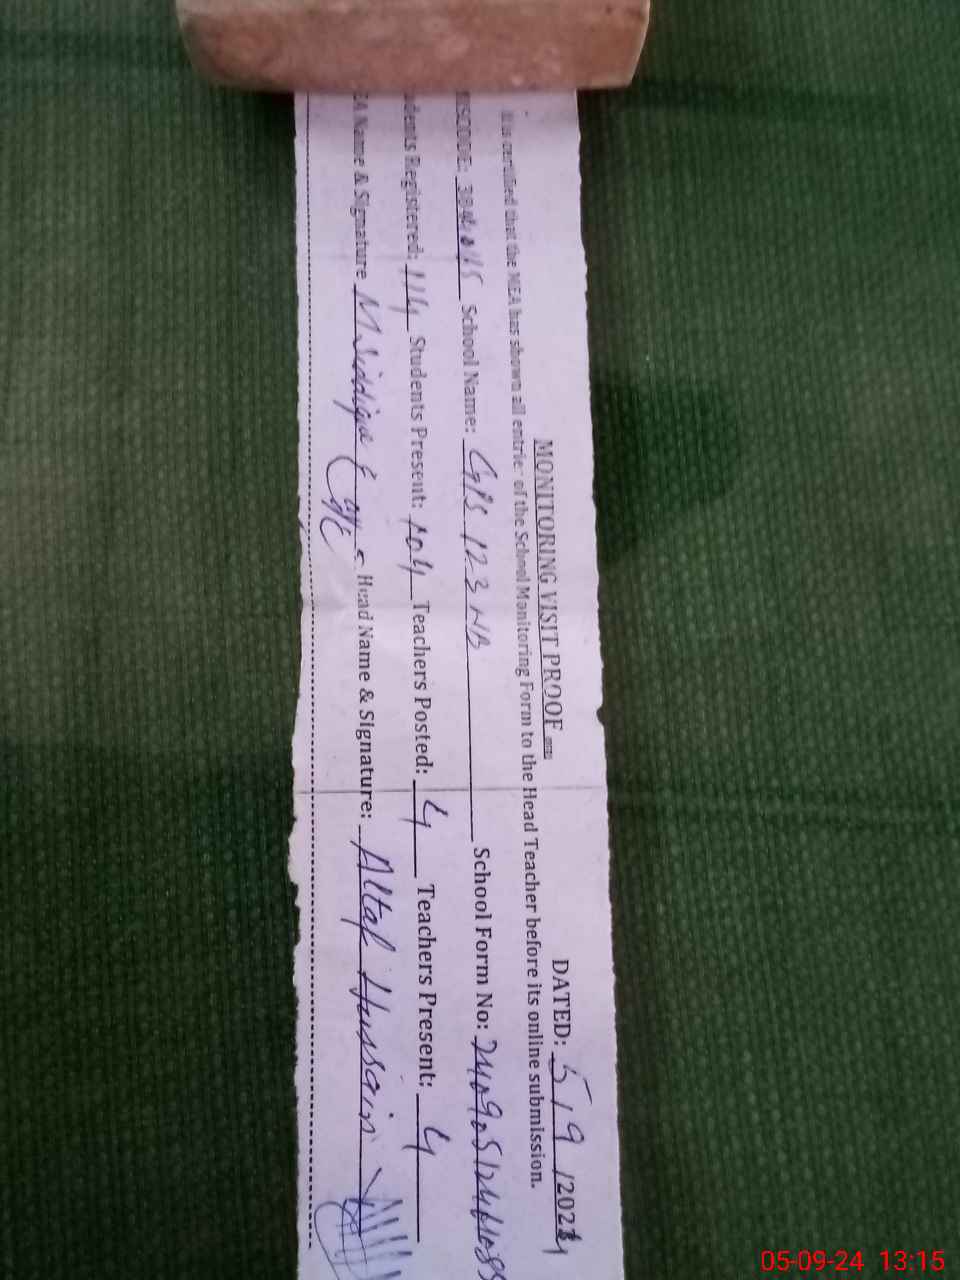 MONITORING VISIT PROOF
DATED: 5/9/2024
It is certified that the MEA has shown all entries of the School Monitoring Form to the Head Teacher before its online submission.
ISCODE: School Name: GPS 123 NB School Form No:
dents Registered: 114 Students Present: 104 Teachers Posted: 4 Teachers Present: 4
EA Name & Signature M. Siddique Head Name & Signature: Altaf Hussain
05-09-24 13:15